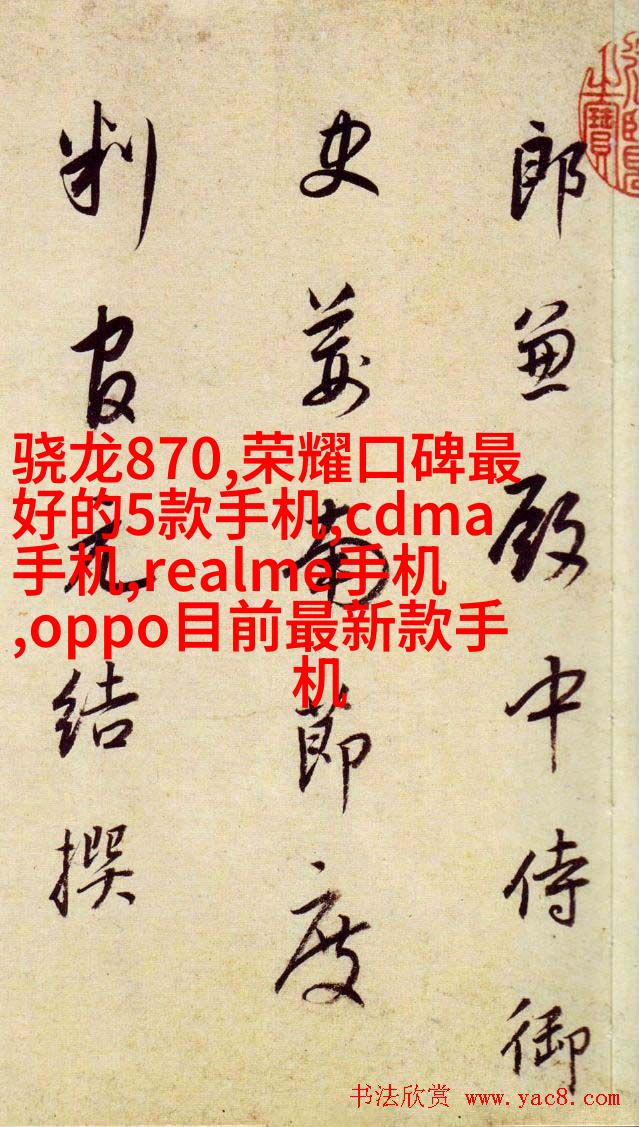 郎兼殿中侍御
史荊南節度
判官元結撰
骁龙870,荣耀口碑最
好的5款手机,cdma
手机,realme手机
,oppo目前最新款手
机
书法欣赏 www.yac8.com